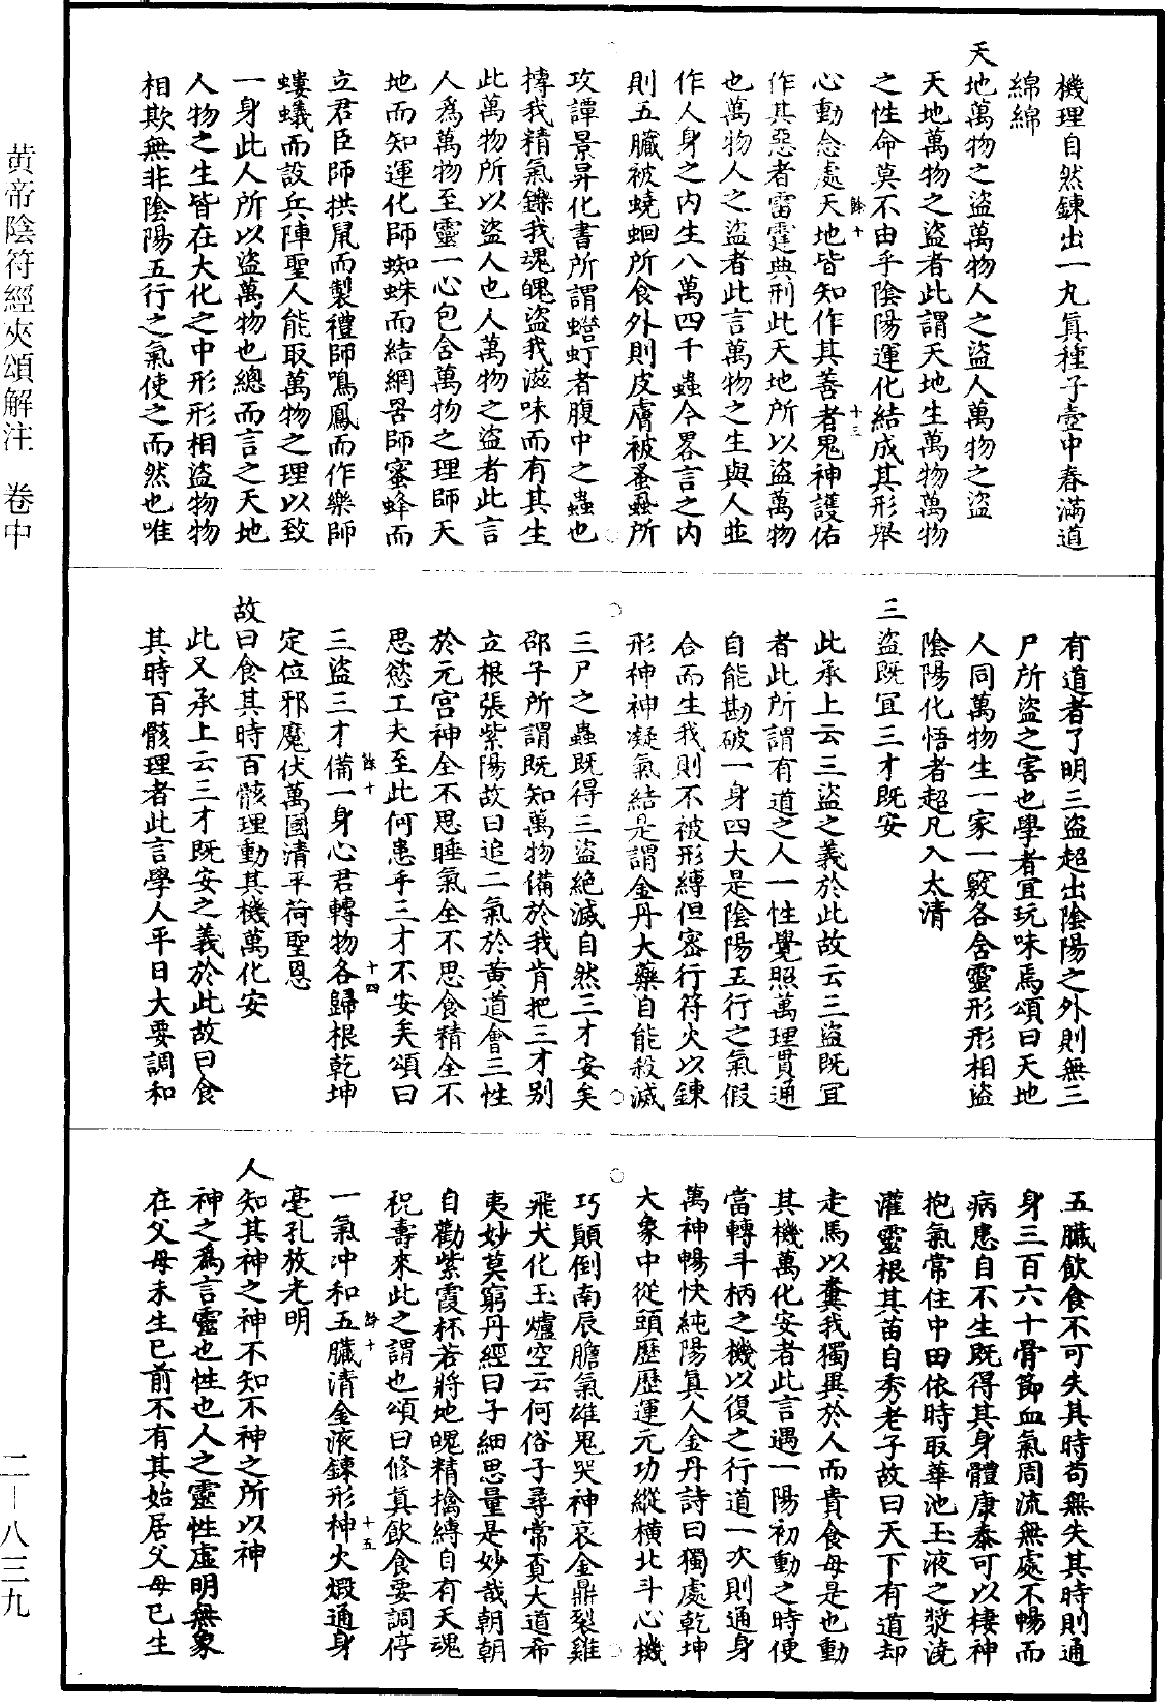 機理自然鍊出一丸真種子壺中春滿道
綿綿
天地萬物之盜萬物人之盜人萬物之盜
天地萬物之盜者此謂天地生萬物萬物
之性命莫不由乎陰陽運化結成其形舉
心動念處天地皆知作其善者鬼神護佑
作其惡者雷霆典刑此天地所以盜萬物
也萬物人之盜者此言萬物之生與人並
作人身之內生八萬四千蟲今畧言之內
則五臟被蟯蛔所食外則皮膚被蚤蝨所
攻譚景昇化書所謂蟾虰者腹中之蟲也
摶我精氣鑠我魂魄盜我滋味而有其生
此萬物所以盜人也人萬物之盜者此言
人為萬物至靈一心包含萬物之理師天
地而知運化師蜘蛛而結網罟師蜜蜂而
立君臣師拱鼠而製禮師鳴鳳而作樂師
螻蟻而設兵陣聖人能取萬物之理以致
一身此人所以盜萬物也總而言之天地
人物之生皆在大化之中形形相盜物物
相欺無非陰陽五行之氣使之而然也唯
有道者了明三盜超出陰陽之外則無三
尸所盜之害也學者宜玩味焉頌曰天地
人同萬物生一家一竅各含靈形形相盜
陰陽化悟者超凡入太清
三盜既宜三才既安
此承上云三盜之義於此故云三盜既宜
者此所謂有道之人一性覺照萬理貫通
自能勘破一身四大是陰陽五行之氣假
合而生我則不被形縛但密行符火以鍊
形神神凝氣結是謂金丹大藥自能殺滅
三尸之蟲既得三盜絕滅自然三才安矣
邵子所謂既知萬物備於我肯把三才別
立根張紫陽故曰追二氣於黃道會三性
於元宮神全不思睡氣全不思食精全不
思慾工夫至此何患乎三才不安矣頌曰
三盜三才備一身心君轉物各歸根乾坤
定位邪魔伏萬國清平荷聖恩
故曰食其時百骸理動其機萬化安
此又承上云三才既安之義於此故曰食
其時百骸理者此言學人平日大要調和
五臟飲食不可失其時苟無失其時則通
身三百六十骨節血氣周流無處不暢而
病患自不生既得其身體康泰可以棲神
抱氣常住中田依時取華池玉液之漿澆
灌靈根其苗自秀老子故曰天下有道却
走馬以糞我獨異於人而貴食母是也動
其機萬化安者此言遇一陽初動之時便
當轉斗柄之機以復之行道一次則通身
萬神暢快純陽真人金丹詩曰獨處乾坤
大象中從頭歷歷運元功縱橫北斗心機
巧顛倒南辰膽氣雄鬼哭神哀金鼎裂雞
飛犬化玉爐空云何俗子尋常覓大道希
夷妙莫窮丹經曰子細思量是妙哉朝朝
自勸紫霞杯若將地魄精擒縛自有天魂
祝壽來此之謂也頌曰修真飲食要調停
一氣冲和五臟清金液鍊形神火煅通身
毫孔放光明
人知其神之神不知不神之所以神
神之為言靈也性也人之靈性虛明無象
在父母未生已前不有其始居父母已生
餘十
十三
餘十
十四
餘十
十五
黃帝陰符經夾頌解注　卷中
二—八三九